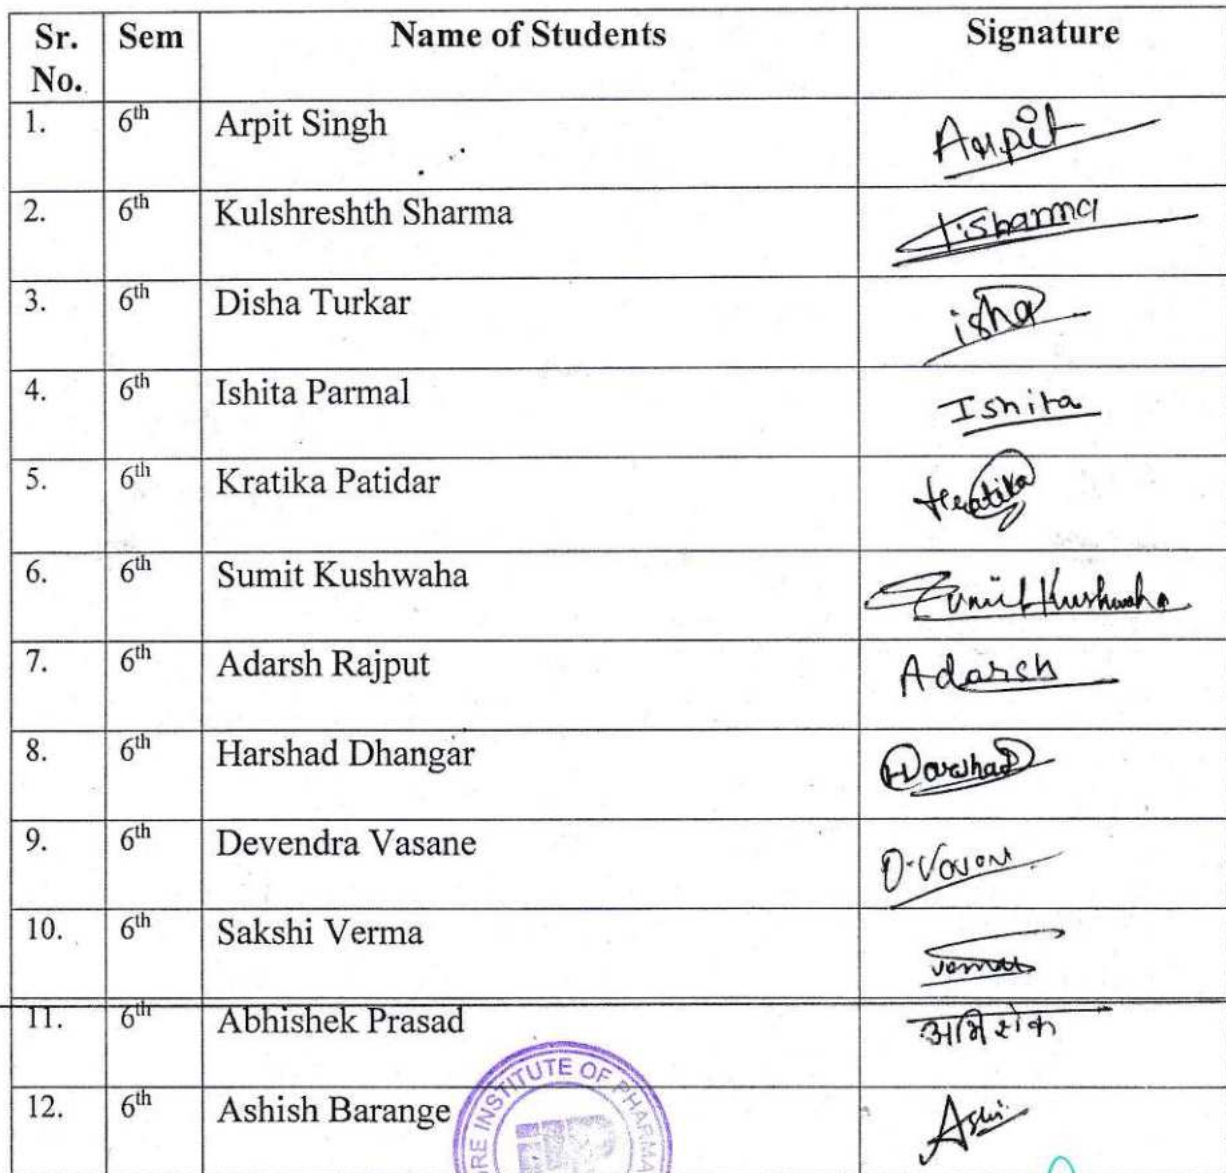 Sr. No. Sem Name of Students Signature
1. 6th Arpit Singh Arpit
2. 6th Kulshreshth Sharma K.Sharma
3. 6th Disha Turkar isha
4. 6th Ishita Parmal Ishita
5. 6th Kratika Patidar Kratika
6. 6th Sumit Kushwaha Sumit Kushwaha
7. 6th Adarsh Rajput Adarsh
8. 6th Harshad Dhangar Harshad
9. 6th Devendra Vasane D.Vasane
10. 6th Sakshi Verma Verma
11. 6th Abhishek Prasad
12. 6th Ashish Barange
INSTITUTE OF PHARMA